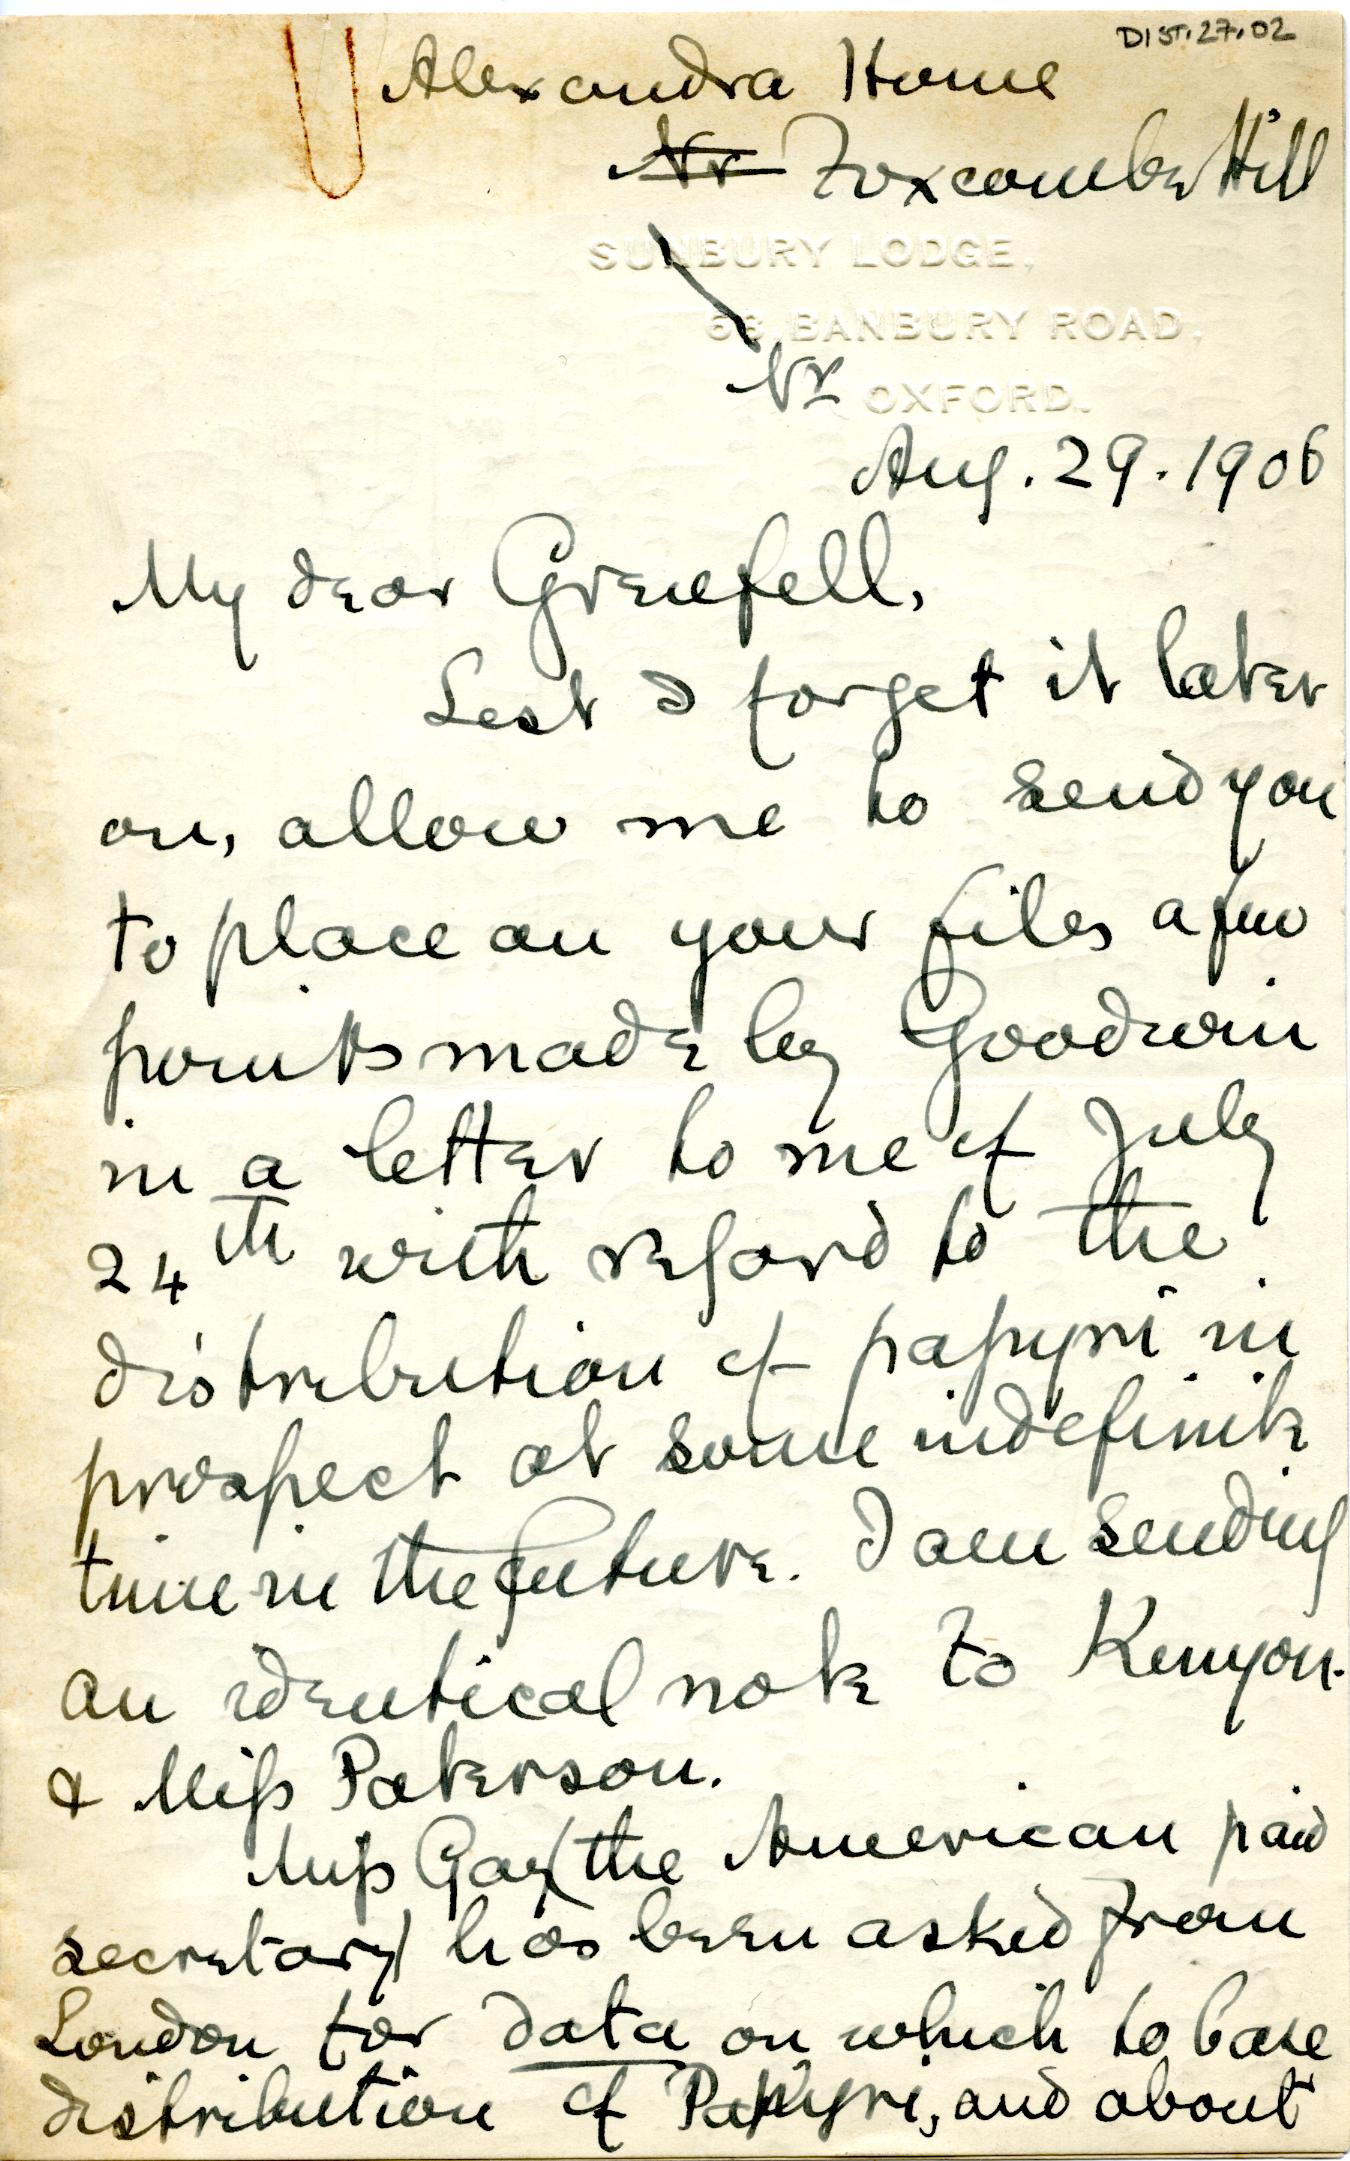 DIST.27.02
Alexandra Home
Nr Foxcombe Hill
SUNBURY LODGE,
63, BANBURY ROAD,
Nr OXFORD.
Aug. 29. 1906
My dear Grenfell,
Lest I forget it later
on, allow me to send you
to place on your files a few
points made by Goodwin
in a letter to me of July
24th with regard to the
distribution of papyri in
prospect at some indefinite
time in the future. I am sending
an identical note to Kenyon
& Miss Paterson.
Miss Gay (the American paid
secretary) has been asked from
London for data on which to base
distribution of Papyri, and about